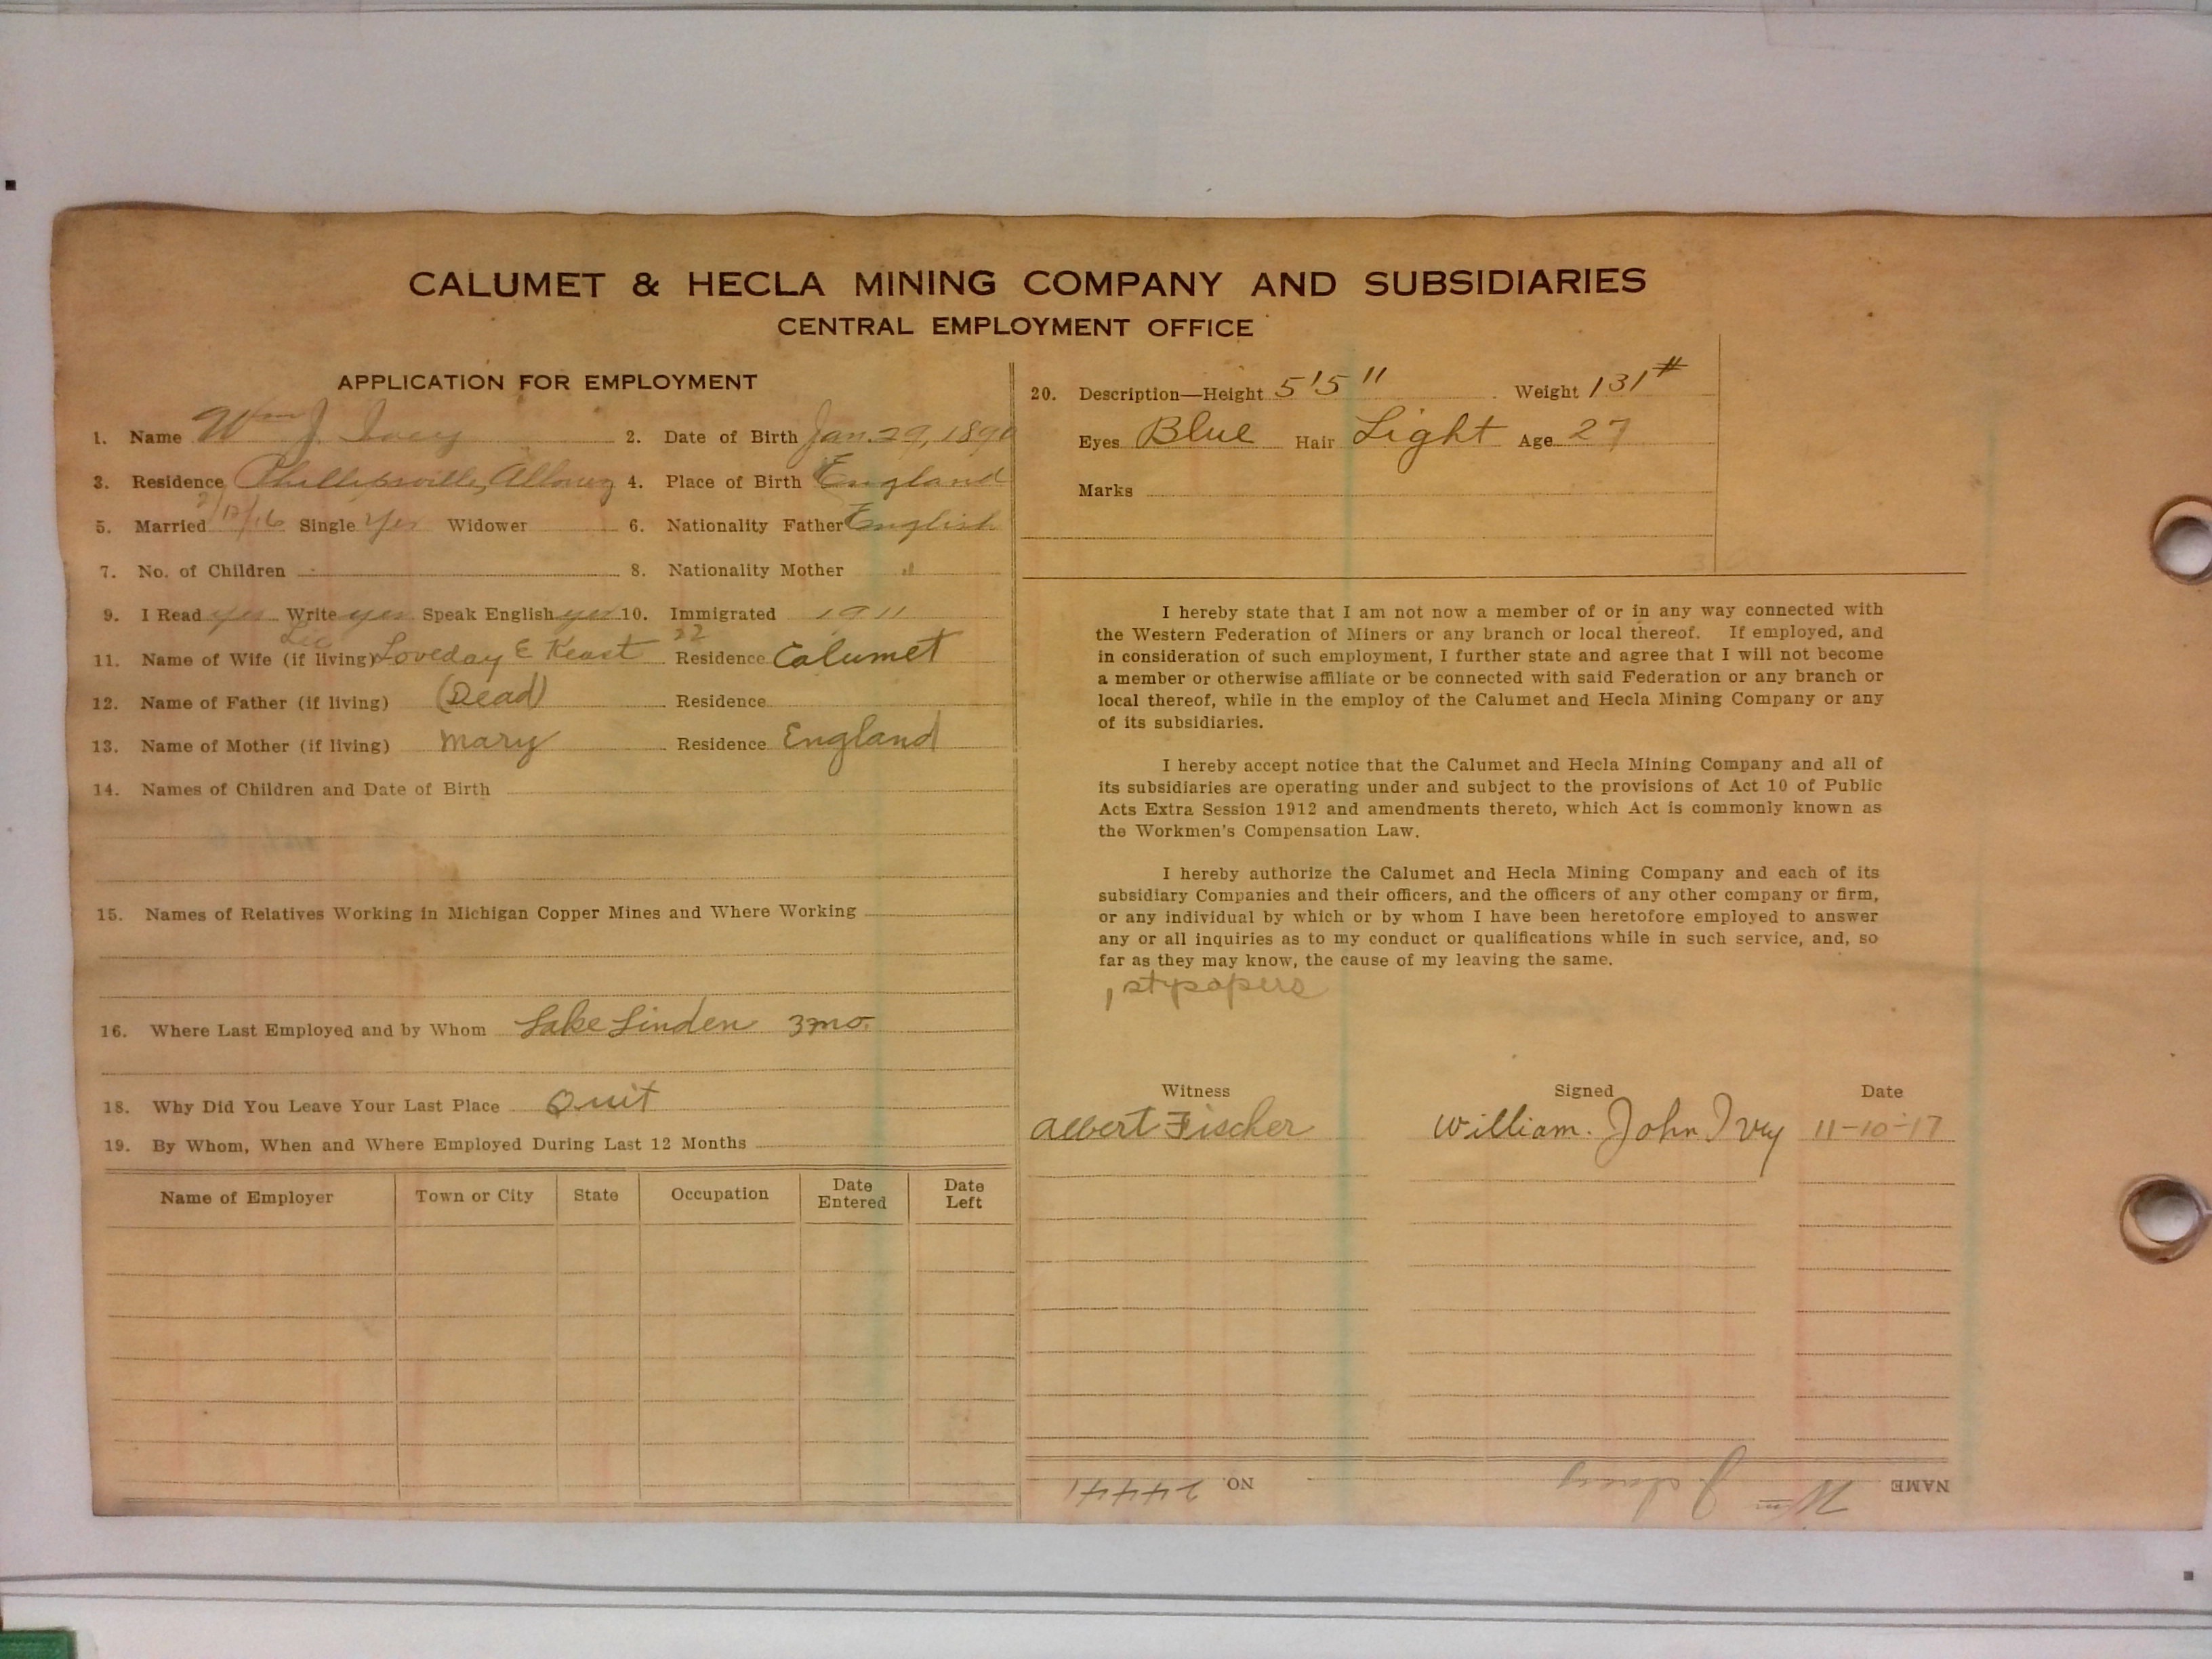 CALUMET & HECLA MINING COMPANY AND SUBSIDIARIES
CENTRAL EMPLOYMENT OFFICE
APPLICATION FOR EMPLOYMENT
1. Name Wm J. Ivey 2. Date of Birth Jan. 29, 1890
3. Residence Phillipsville, Allouez 4. Place of Birth England
5. Married /12/16 Single Yes Widower 6. Nationality Father English
7. No. of Children 8. Nationality Mother "
9. I Read yes Write yes Speak English yes 10. Immigrated 1911
22
11. Name of Wife (if living) Loveday E Keast Residence Calumet
12. Name of Father (if living) (Dead) Residence
13. Name of Mother (if living) Mary Residence England
14. Names of Children and Date of Birth
15. Names of Relatives Working in Michigan Copper Mines and Where Working
16. Where Last Employed and by Whom Lake Linden 3 mo.
18. Why Did You Leave Your Last Place Quit
19. By Whom, When and Where Employed During Last 12 Months
Name of Employer Town or City State Occupation Date Entered Date Left
20. Description—Height 5'5" Weight 131#
Eyes Blue Hair Light Age 27
Marks
I hereby state that I am not now a member of or in any way connected with
the Western Federation of Miners or any branch or local thereof. If employed, and
in consideration of such employment, I further state and agree that I will not become
a member or otherwise affiliate or be connected with said Federation or any branch or
local thereof, while in the employ of the Calumet and Hecla Mining Company or any
of its subsidiaries.
I hereby accept notice that the Calumet and Hecla Mining Company and all of
its subsidiaries are operating under and subject to the provisions of Act 10 of Public
Acts Extra Session 1912 and amendments thereto, which Act is commonly known as
the Workmen's Compensation Law.
I hereby authorize the Calumet and Hecla Mining Company and each of its
subsidiary Companies and their officers, and the officers of any other company or firm,
or any individual by which or by whom I have been heretofore employed to answer
any or all inquiries as to my conduct or qualifications while in such service, and, so
far as they may know, the cause of my leaving the same.
1st papers
Witness Signed Date
Albert Fischer William. John Ivey 11-10-17
NAME Wm J Ivey NO. 24441